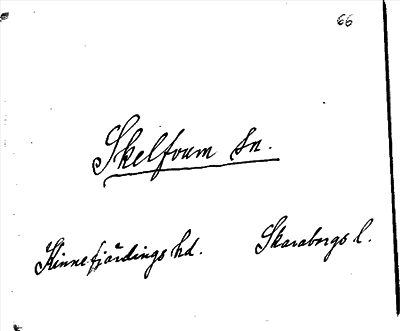 66
Skelfvum sn.
Kinnefjärdings hd. Skaraborgs l.